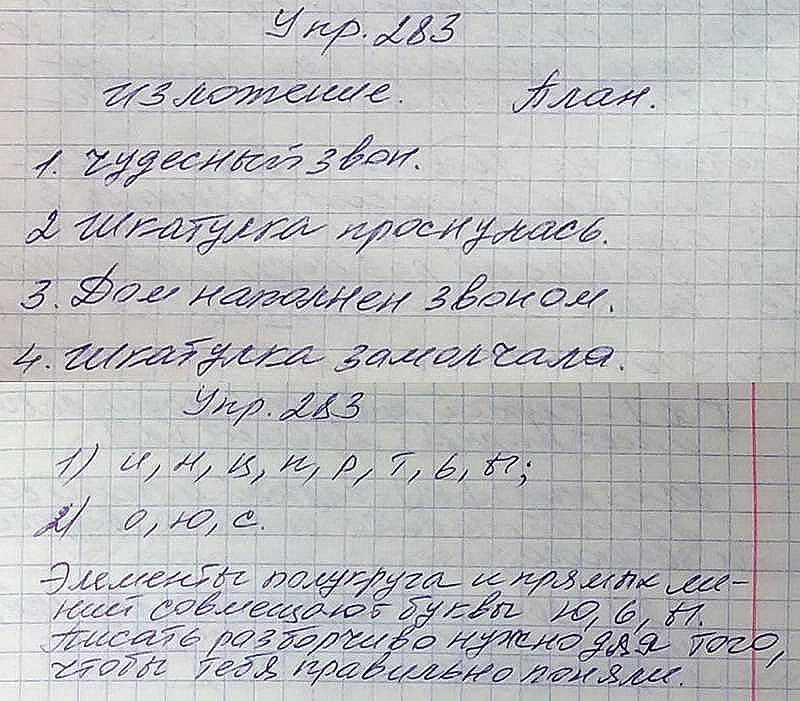 Упр. 283
Изложение. План.
1. Чудесный звон.
2 Шкатулка проснулась.
3. Дом наполнен звоном.
4. Шкатулка замолчала.
Упр. 283
1) и, н, ц, п, р, т, ь, ы;
2) о, ю, с.
Элементы полукруга и прямых ли-
ний совмещают буквы ю, ь, ы.
Писать разборчиво нужно для того,
чтобы тебя правильно поняли.